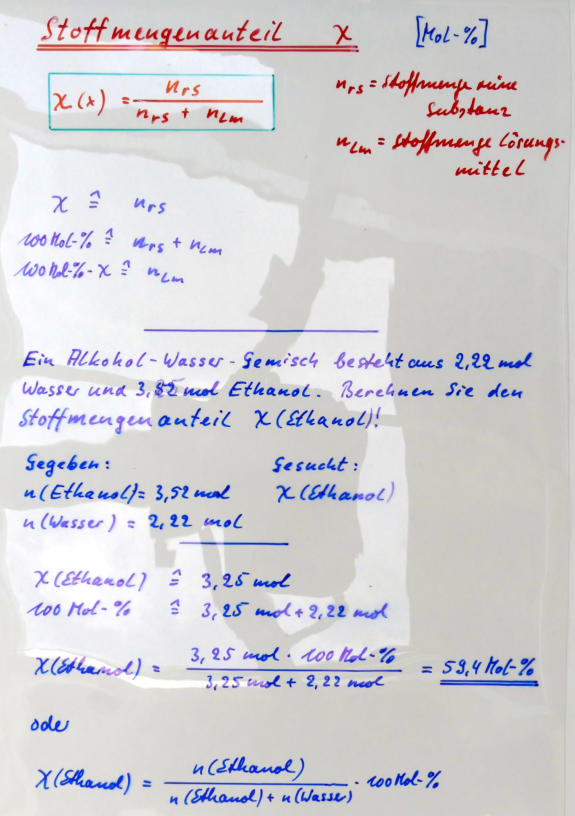 Stoffmengenanteil χ [Mol-%]
χ(x) = nrs / (nrs + nLm)
nrs = Stoffmenge reine
Substanz
nLm = Stoffmenge Lösungs-
mittel
χ ≙ nrs
100 Mol-% ≙ nrs + nLm
100 Mol-% - χ ≙ nLm
Ein Alkohol-Wasser-Gemisch besteht aus 2,22 mol
Wasser und 3,52 mol Ethanol. Berechnen Sie den
Stoffmengenanteil χ(Ethanol)!
Gegeben: Gesucht:
n(Ethanol) = 3,52 mol χ(Ethanol)
n(Wasser) = 2,22 mol
χ(Ethanol) ≙ 3,25 mol
100 Mol-% ≙ 3,25 mol + 2,22 mol
χ(Ethanol) = 3,25 mol · 100 Mol-% / 3,25 mol + 2,22 mol = 59,4 Mol-%
oder
χ(Ethanol) = n(Ethanol) / n(Ethanol) + n(Wasser) · 100 Mol-%